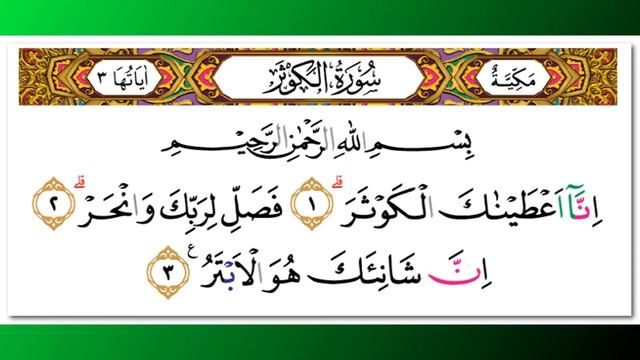 مَكِّيَّةٌ سُوْرَةُ الْكَوْثَرِ اٰيَاتُهَا ٣
بِسْمِ اللهِ الرَّحْمٰنِ الرَّحِيْمِ
اِنَّآ اَعْطَيْنٰكَ الْكَوْثَرَ ۗ ١ فَصَلِّ لِرَبِّكَ وَانْحَرْ ۗ ٢
اِنَّ شَانِئَكَ هُوَ الْاَبْتَرُ ࣖ ٣